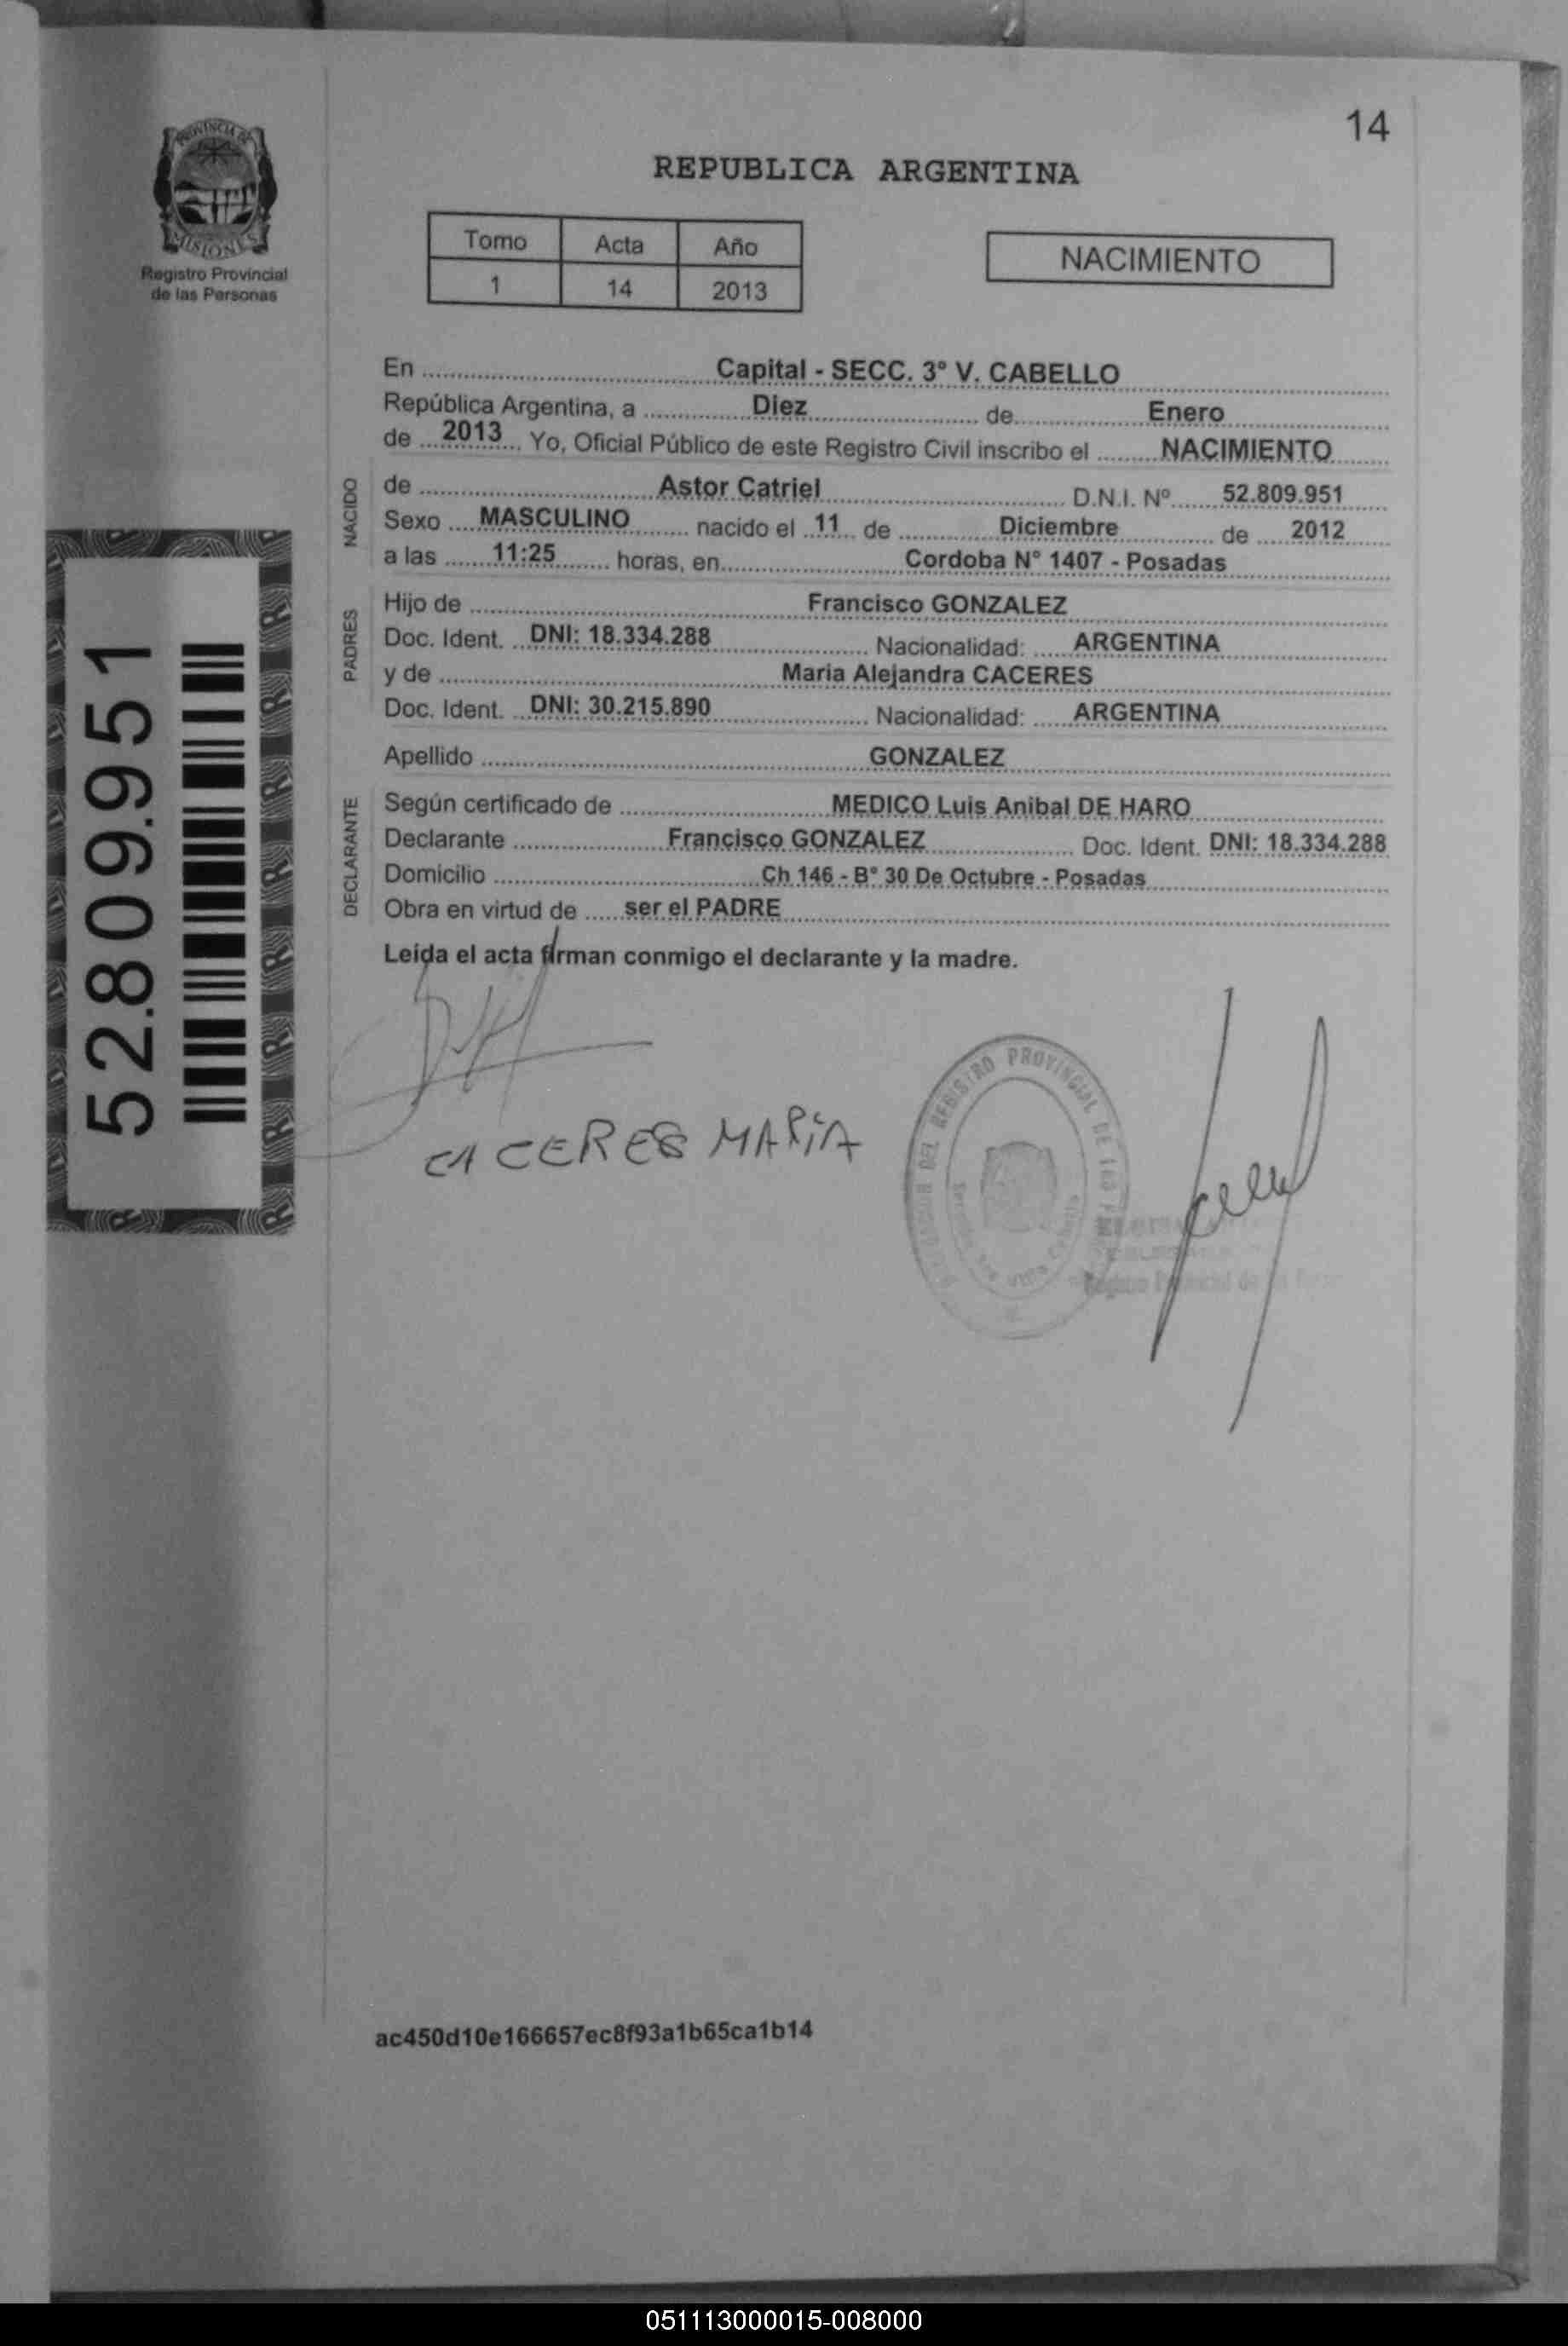 14
PROVINCIA DE
MISIONES
Registro Provincial
de las Personas
REPUBLICA ARGENTINA
Tomo Acta Año
1 14 2013
NACIMIENTO
En Capital - SECC. 3° V. CABELLO
República Argentina, a Diez de Enero
de 2013 Yo, Oficial Público de este Registro Civil inscribo el NACIMIENTO
NACIDO
de Astor Catriel D.N.I. Nº 52.809.951
Sexo MASCULINO nacido el 11 de Diciembre de 2012
a las 11:25 horas, en Cordoba N° 1407 - Posadas
PADRES
Hijo de Francisco GONZALEZ
Doc. Ident. DNI: 18.334.288 Nacionalidad: ARGENTINA
y de Maria Alejandra CACERES
Doc. Ident. DNI: 30.215.890 Nacionalidad: ARGENTINA
Apellido GONZALEZ
DECLARANTE
Según certificado de MEDICO Luis Anibal DE HARO
Declarante Francisco GONZALEZ Doc. Ident. DNI: 18.334.288
Domicilio Ch 146 - B° 30 De Octubre - Posadas
Obra en virtud de ser el PADRE
Leída el acta firman conmigo el declarante y la madre.
52.809.951
CACERES MARIA
DEL REGISTRO PROVINCIAL DE
Registro Provincial de
ac450d10e166657ec8f93a1b65ca1b14
051113000015-008000